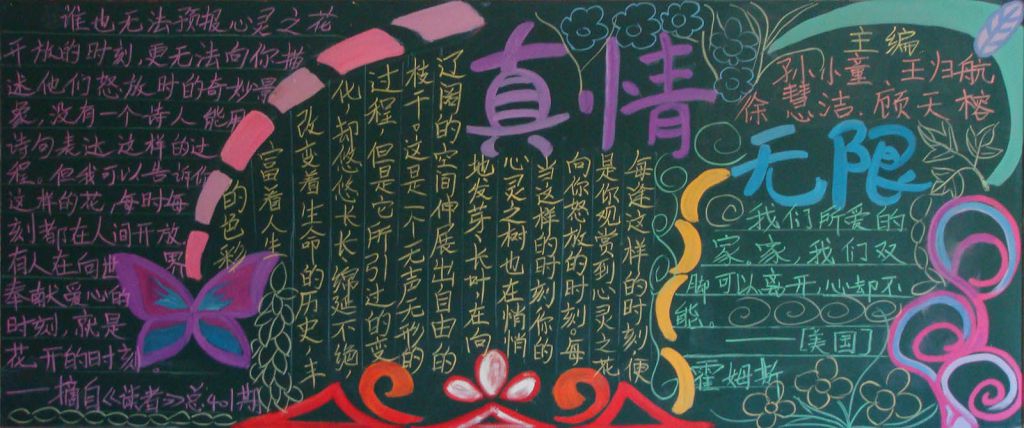 真情
无限
主编
孙小童、王归航
徐慧洁、顾天榕
谁也无法预报心灵之花
开放的时刻,更无法向你描
述他们怒放时的奇妙景
象,没有一个诗人能用
诗句表达这样的过
程。但我可以告诉你
这样的花,每时每
刻都在人间开放。
有人在向世界
奉献爱心的
时刻,就是
花开的时刻。
——摘自《读者》总401期
每逢这样的时刻便
是你观赏到心灵之花
向你怒放的时刻。每
当这样的时刻你的
心灵之树也在悄悄
地发芽、长叶,在向
辽阔的空间伸展出自由的
枝干。这是一个无声无形的
过程,但是它所引过的变
化却悠悠长长绵延不绝
改变着生命的历史,丰
富着人生
的色彩
我们所爱的
家,家,我们双
脚可以离开,心却不
能。
——[美国]
霍姆斯